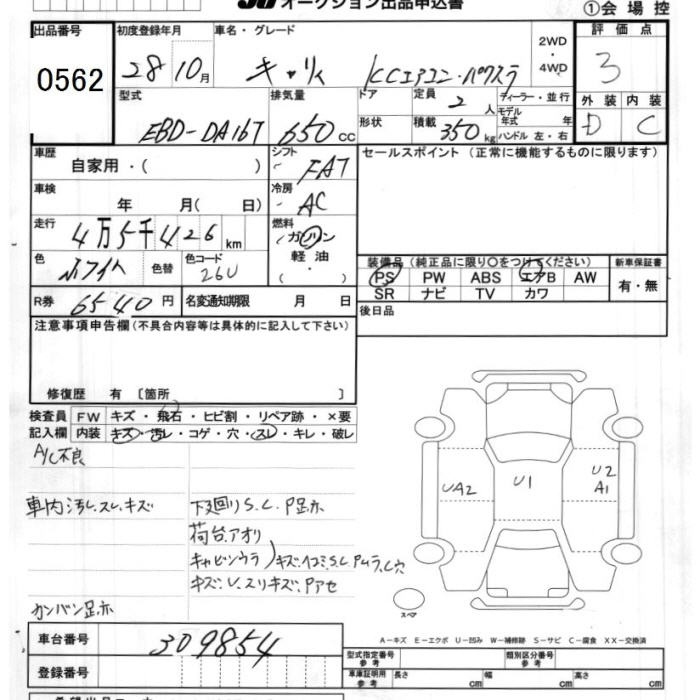 オークション出品申込書
①会場控
出品番号
0562
初度登録年月
28 10月
車名・グレード
キャリィ KCエアコン・パワステ
2WD
・
4WD
評価点
3
型式
EBD-DA16T
排気量
650cc
ドア
形状
定員
2人
積載
350kg
ディーラー・並行
モデル年式 年
ハンドル 左・右
外装 内装
D C
車歴
自家用・( )
シフト
FAT
セールスポイント (正常に機能するものに限ります)
車検
年 月( 日)
冷房
AC
走行
4万5千426km
燃料
ガソリン
軽油
( ・ )
色
ホワイト
色替
色コード
26U
装備品(純正品に限り○をつけてください)
PS PW ABS エアB AW
SR ナビ TV カワ
新車保証書
有・無
R券 6540円
名変通知期限 月 日
後日品
注意事項申告欄(不具合内容等は具体的に記入して下さい)
修復歴 有 〔箇所 〕
検査員 FW キズ・飛石・ヒビ割・リペア跡・×要
記入欄 内装 キズ・汚レ・コゲ・穴・スレ・キレ・破レ
A/C不良
車内汚レ.スレ.キズ
下廻りS.C.P足赤
荷台.アオリ
キャビンウラ キズ.イコミ.S.C.Pムラ.C穴
キズ.U.スリキズ.Pアセ
カンバン足赤
UA2
U1
U2
A1
スペア
A-キズ E-エクボ U-凹み W-補修跡 S-サビ C-腐食 XX-交換済
車台番号 309854
登録番号
型式指定番号
参考
類別区分番号
参考
車庫証明用
参考
長さ cm
幅 cm
高さ cm